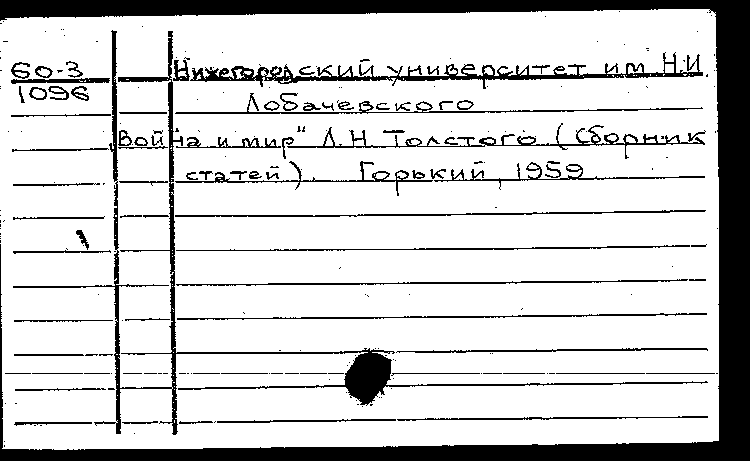 60-3 Нижегородский университет им Н.И.
1096 Лобачевского
"Война и мир" Л.Н. Толстого (Сборник
статей). Горький, 1959.